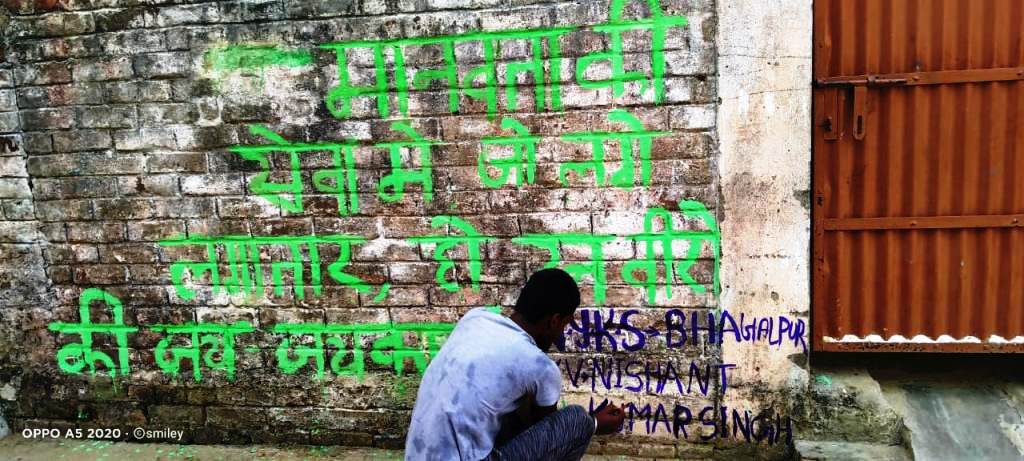 मानवता की
सेवा में जो लगे
लगातार, हो उन वीरों
की जय-जयकार
NYKS-BHAGALPUR
V-NISHANT
KUMAR SINGH
OPPO A5 2020 · ©smiley